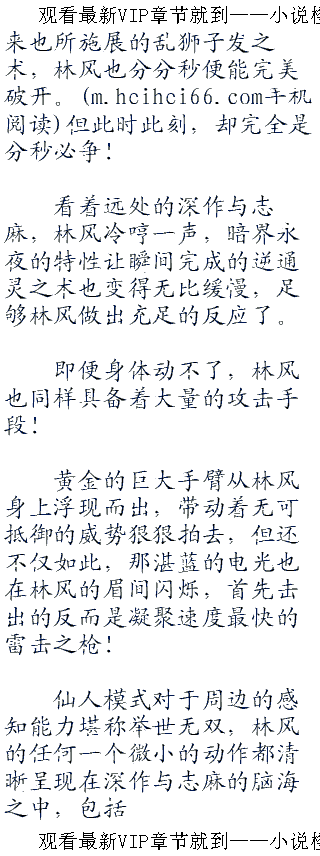 观看最新VIP章节就到——小说检
来也所施展的乱狮子发之
术，林风也分分秒便能完美
破开。(m.hcihci66.com手机
阅读)但此时此刻，却完全是
分秒必争！
看着远处的深作与志
麻，林风冷哼一声，暗界永
夜的特性让瞬间完成的逆通
灵之术也变得无比缓慢，足
够林风做出充足的反应了。
即便身体动不了，林风
也同样具备着大量的攻击手
段！
黄金的巨大手臂从林风
身上浮现而出，带动着无可
抵御的威势狠狠拍去，但还
不仅如此，那湛蓝的电光也
在林风的眉间闪烁，首先击
出的反而是凝聚速度最快的
雷击之枪！
仙人模式对于周边的感
知能力堪称举世无双，林风
的任何一个微小的动作都清
晰呈现在深作与志麻的脑海
之中，包括
观看最新VIP章节就到——小说检